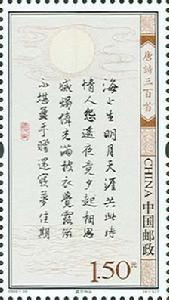 唐詩三百首
海上生明月天涯共此時
情人怨遥夜竟夕起相思
滅燭憐光滿披衣覺露滋
不堪盈手贈還寢夢佳期
CHINA
中国邮政
1.50元